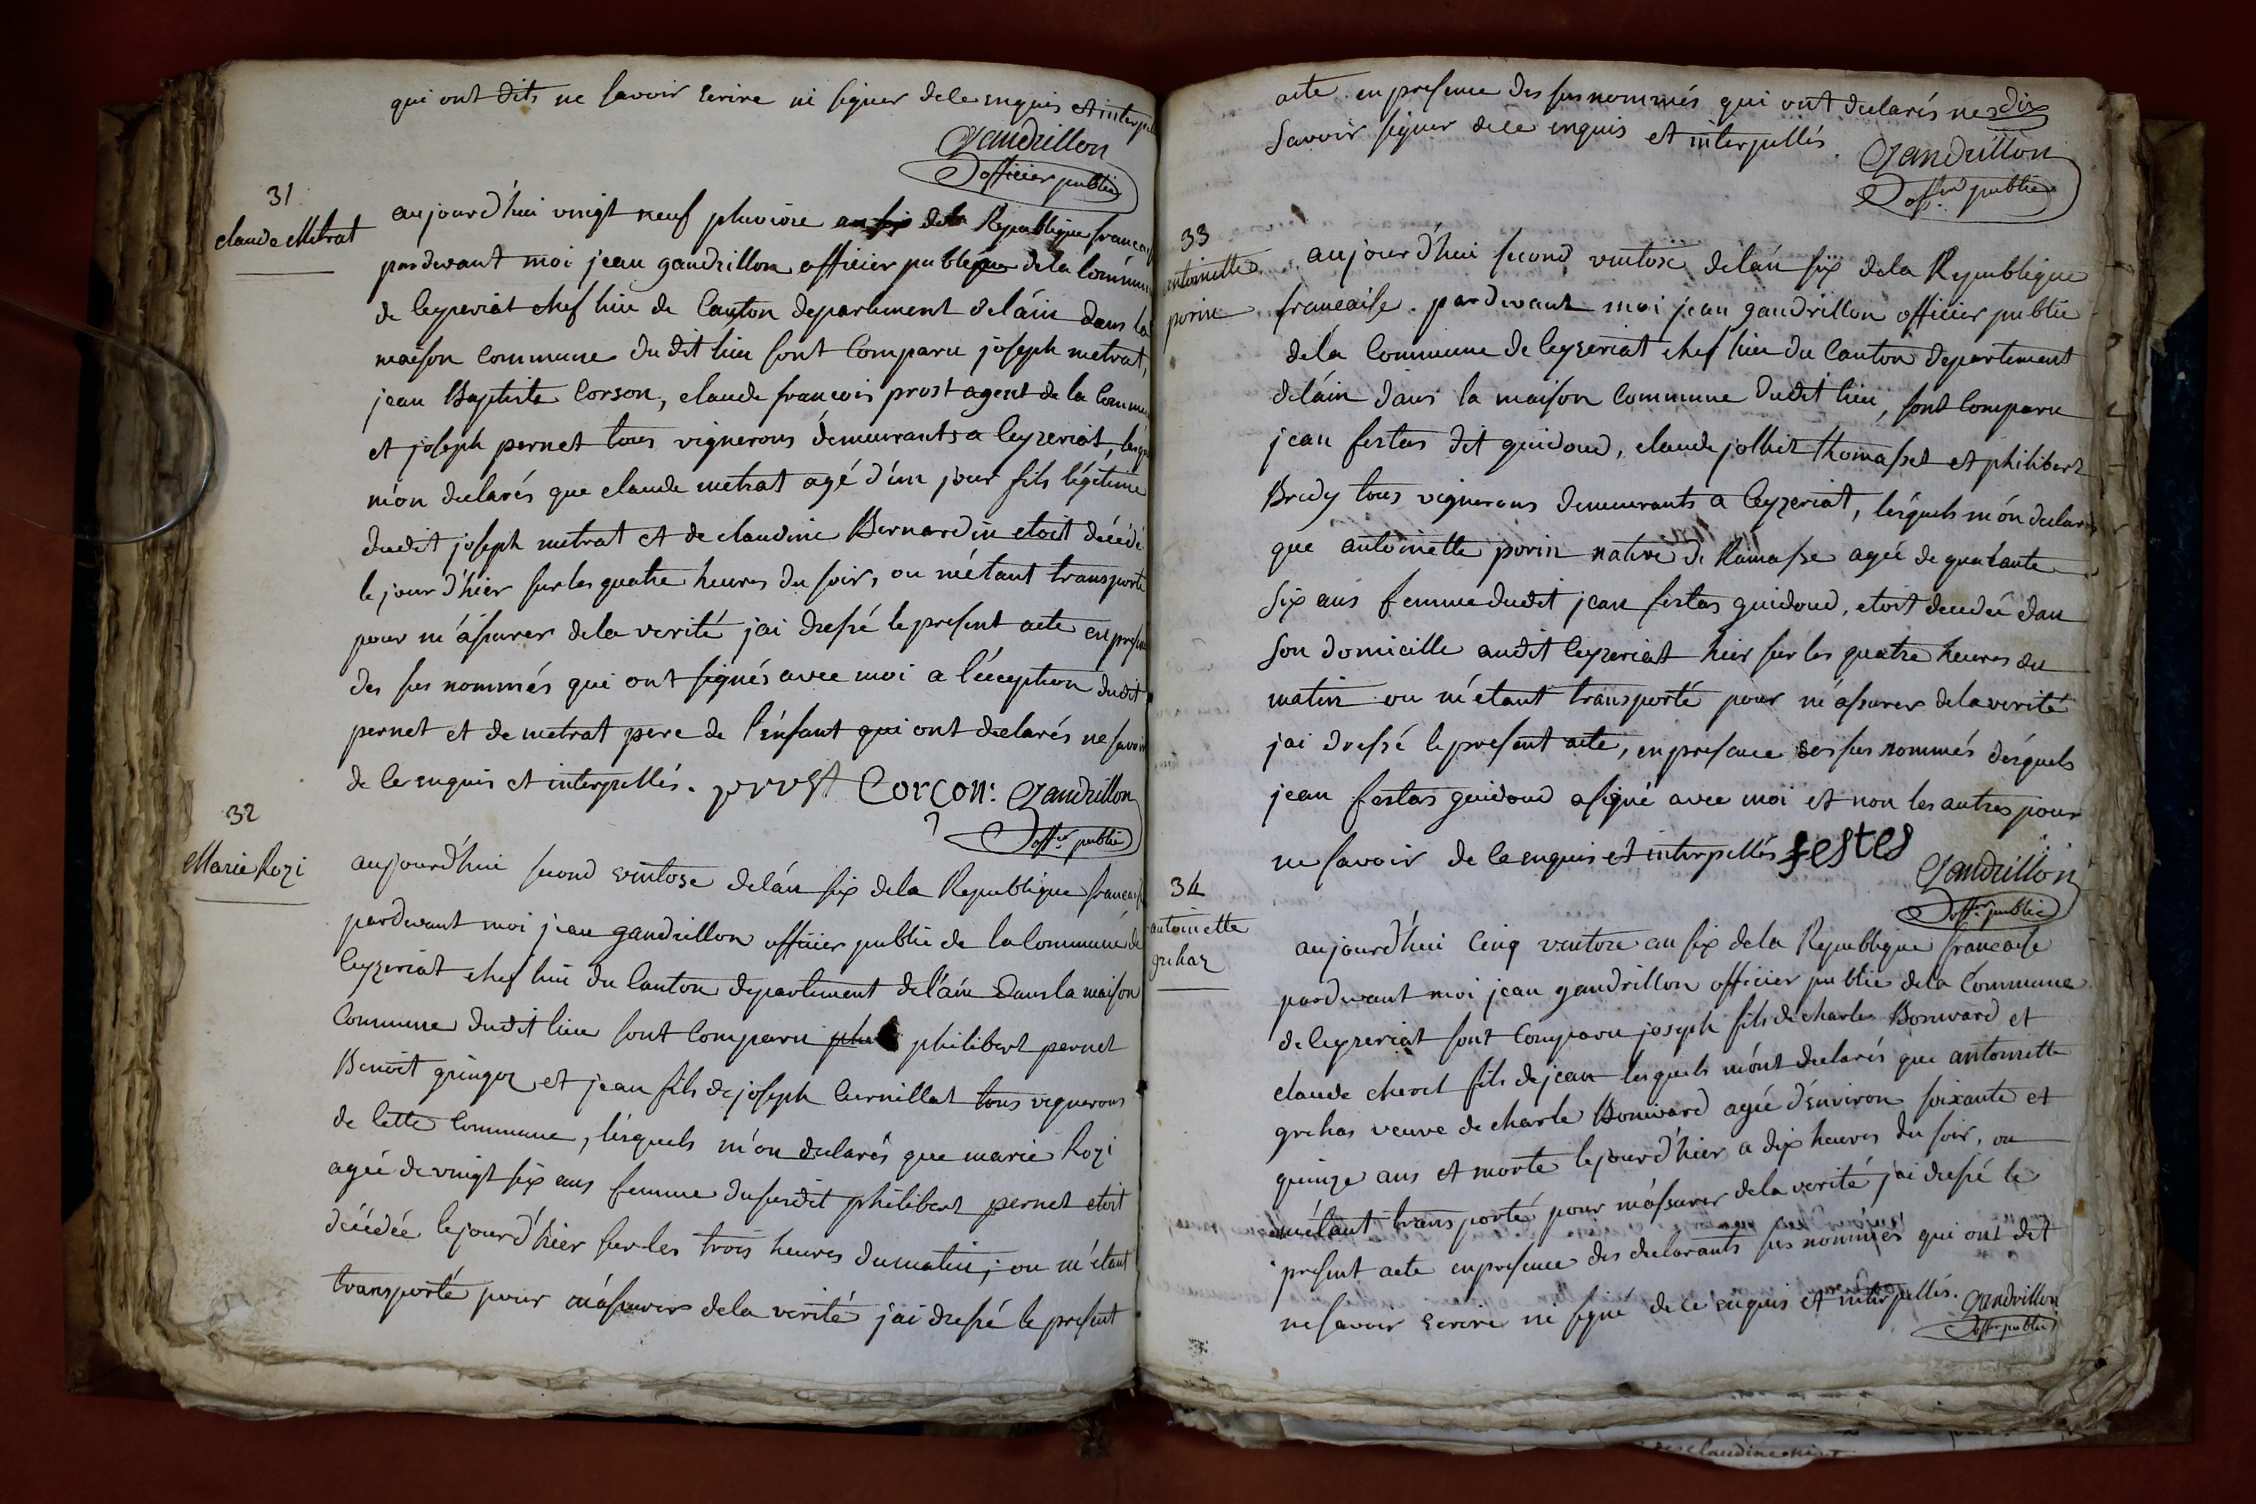 qui ont dits ne savoir ecrire ni signer de ce enquis et interpel
Gandrillon
officier public
31
claude Metrat
aujourd'hui vingt neuf pluviose an six dela Republique francais
pardevant moi jean gandrillon officier public dela commune
de Ceyzeriat chef lieu de Canton departement de l'ain dans la
maison commune dudit lieu sont comparu joseph metrat,
jean Baptiste Corson, claude francois prost agent de la commune
et joseph pernet tous vignerons demeurants a Ceyzeriat, lesq
m'on declarés que claude metrat agé d'un jour fils légitime
dudit joseph metrat et de claudine Bernardin etoit décédé
le jour d'hier sur les quatre heures du soir, ou m'étant transporté
pour m'assurer dela verité j'ai dressé le present acte en prese
des sus nommés qui ont signés avec moi a l'éxeption dudit
pernet et de metrat pere de l'énfant qui ont declarés ne savoir
de ce enquis et interpellés. prost Corçon. Gandrillon
offer public
32
Marie Rozi
aujourd'hui second ventose de l'an six dela Republique francais
pardevant moi jean gandrillon officier public de la commune de
Ceyzeriat chef lieu du Canton departement de l'ain dans la maison
commune dudit lieu sont comparu philibert pernet
Benoit gringoz et jean fils de joseph Curnillat tous vignerons
de cette commune, lésquels m'on declarés que marie Rozi
agée de vingt six ans femme du susdit philibert pernet etoit
décédée le jour d'hier sur les trois heures du matin, ou m'étant
transporté pour m'assurer dela verité j'ai dressé le present
acte en presence des sus nommés qui ont declarés ne
dix
savoir signer de ce enquis et interpellés.
Gandrillon
offer public
33
antoinette
porin
aujourd'hui second ventose de l'an six dela Republique
francaise. pardevant moi jean gandrillon officier public
dela commune de Ceyzeriat chef lieu du Canton departement
de l'ain dans la maison commune dudit lieu, sont comparu
jean festas dit guidoud, claude jolliet thomasset et philibert
Bredy tous vignerons demeurants a Ceyzeriat, lésquels m'ón declarés
que antoinette porin native de Ramasse agée de quarante
six ans femme dudit jean festas guidoud, etoit decedée dan
son domicille audit Ceyzeriat hier sur les quatre heures du
matin ou m'etant transporté pour m'assurer dela verité
jai dressé le present acte, en presence des sus nommés désquels
jean festas guidoud a signé avec moi et non les autres pour
ne savoir de ce enquis et interpellés festes
Gandrillon
offer public
34
antoinette
grehaz
aujourd'hui cinq ventose an six dela Republique francaise
pardevant moi jean gandrillon officier public dela commune
de Ceyzeriat sont comparu joseph fils de charle Bonivard et
claude chevet fils de jean lesquels m'ónt declarés que antoinette
grehas veuve de charle Bonivard agée d'énviron soixante et
quinze ans et morte le jourd'hier a dix heures du soir, ou
m'étant transporté pour m'assurer dela verité j'ai dressé le
present acte en presence des declarants sus nommés qui ont dit
ne savoir ecrire ni signé de ce enquis et interpellés. Gandrillon
offer public